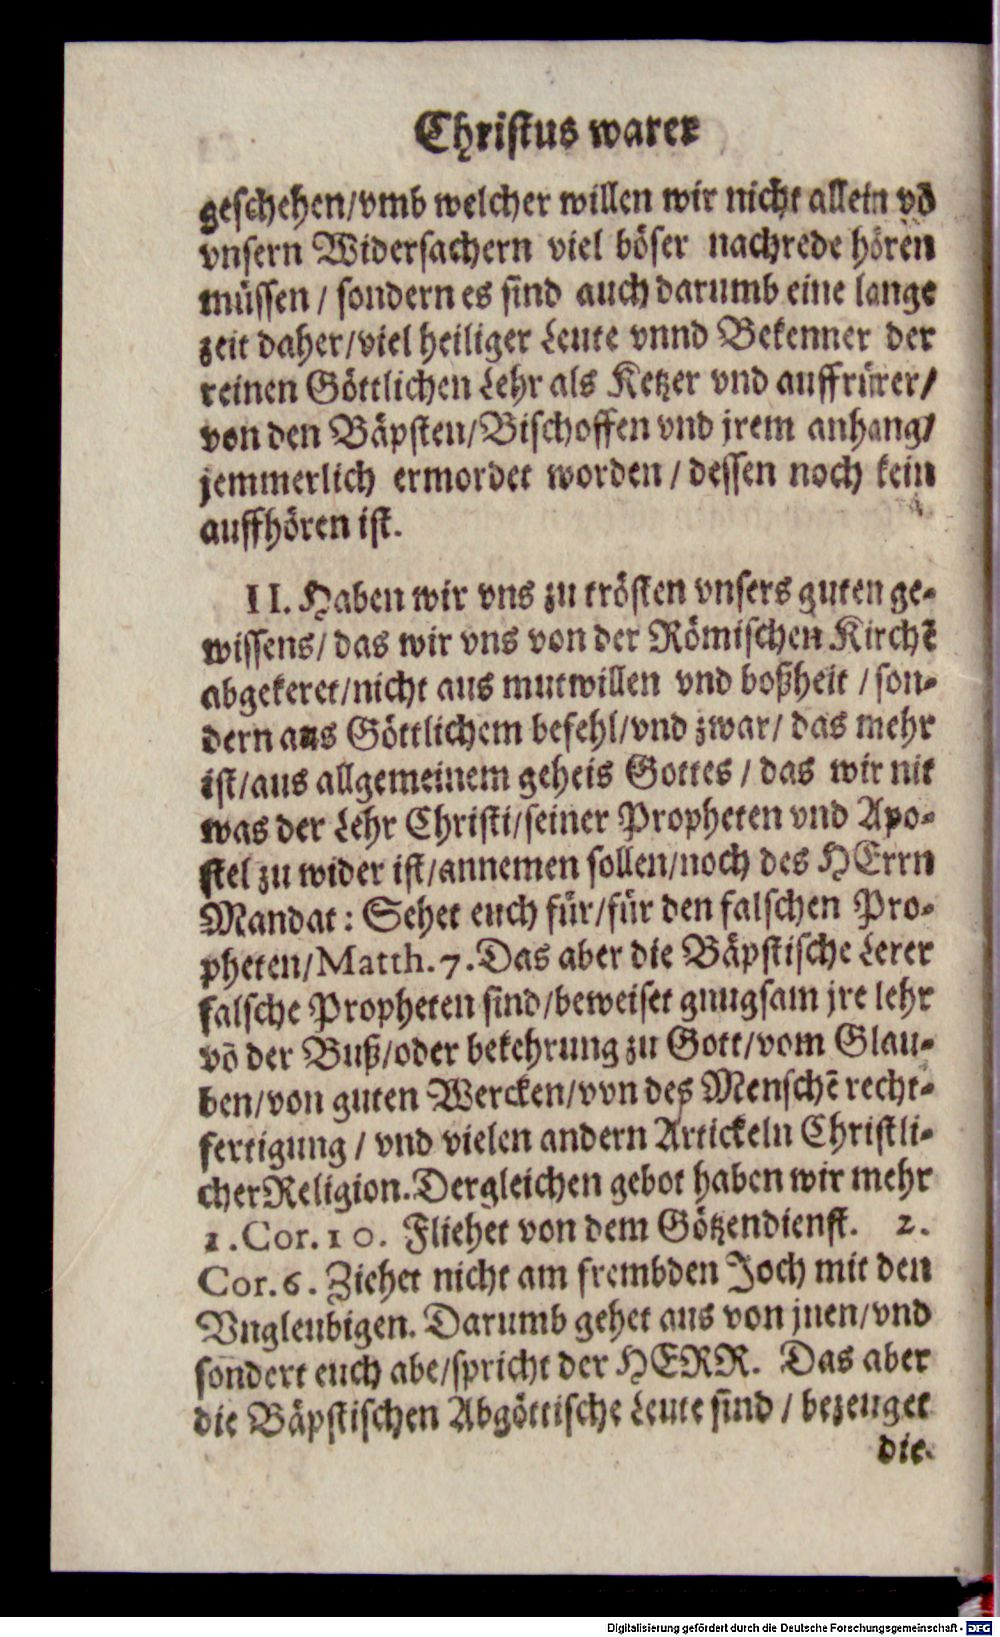 Christus warer
geschehen/vmb welcher willen wir nicht allein võ
vnsern Widersachern viel böser nachrede hören
müssen / sondern es sind auch darumb eine lange
zeit daher/viel heiliger Leute vnnd Bekenner der
reinen Göttlichen Lehr als Ketzer vnd auffrürer/
von den Bäpsten/Bischoffen vnd jrem anhang/
jemmerlich ermordet worden / dessen noch kein
auffhören ist.
II. Haben wir vns zu trösten vnsers guten ge-
wissens/ das wir vns von der Römischen Kirchẽ
abgekeret/nicht aus mutwillen vnd boßheit / son-
dern aus Göttlichem befehl/vnd zwar/ das mehr
ist/aus allgemeinem geheis Gottes / das wir nit
was der Lehr Christi/seiner Propheten vnd Apo-
stel zu wider ist/annemen sollen/noch des HErrn
Mandat: Sehet euch für/für den falschen Pro-
pheten/Matth. 7. Das aber die Bäpstische Lerer
falsche Propheten sind/beweiset gnugsam jre lehr
võ der Buß/oder bekehrung zu Gott/vom Glau-
ben/von guten Wercken/vvn des Menschẽ recht-
fertigung / vnd vielen andern Artickeln Christli-
cher Religion. Dergleichen gebot haben wir mehr
1. Cor. 10. Fliehet von dem Götzendienst. 2.
Cor. 6. Ziehet nicht am frembden Joch mit den
Vngleubigen. Darumb gehet aus von jnen/vnd
sondert euch abe/spricht der HERR. Das aber
die Bäpstischen Abgöttische Leute sind / bezeuget
die
Digitalisierung gefördert durch die Deutsche Forschungsgemeinschaft - DFG